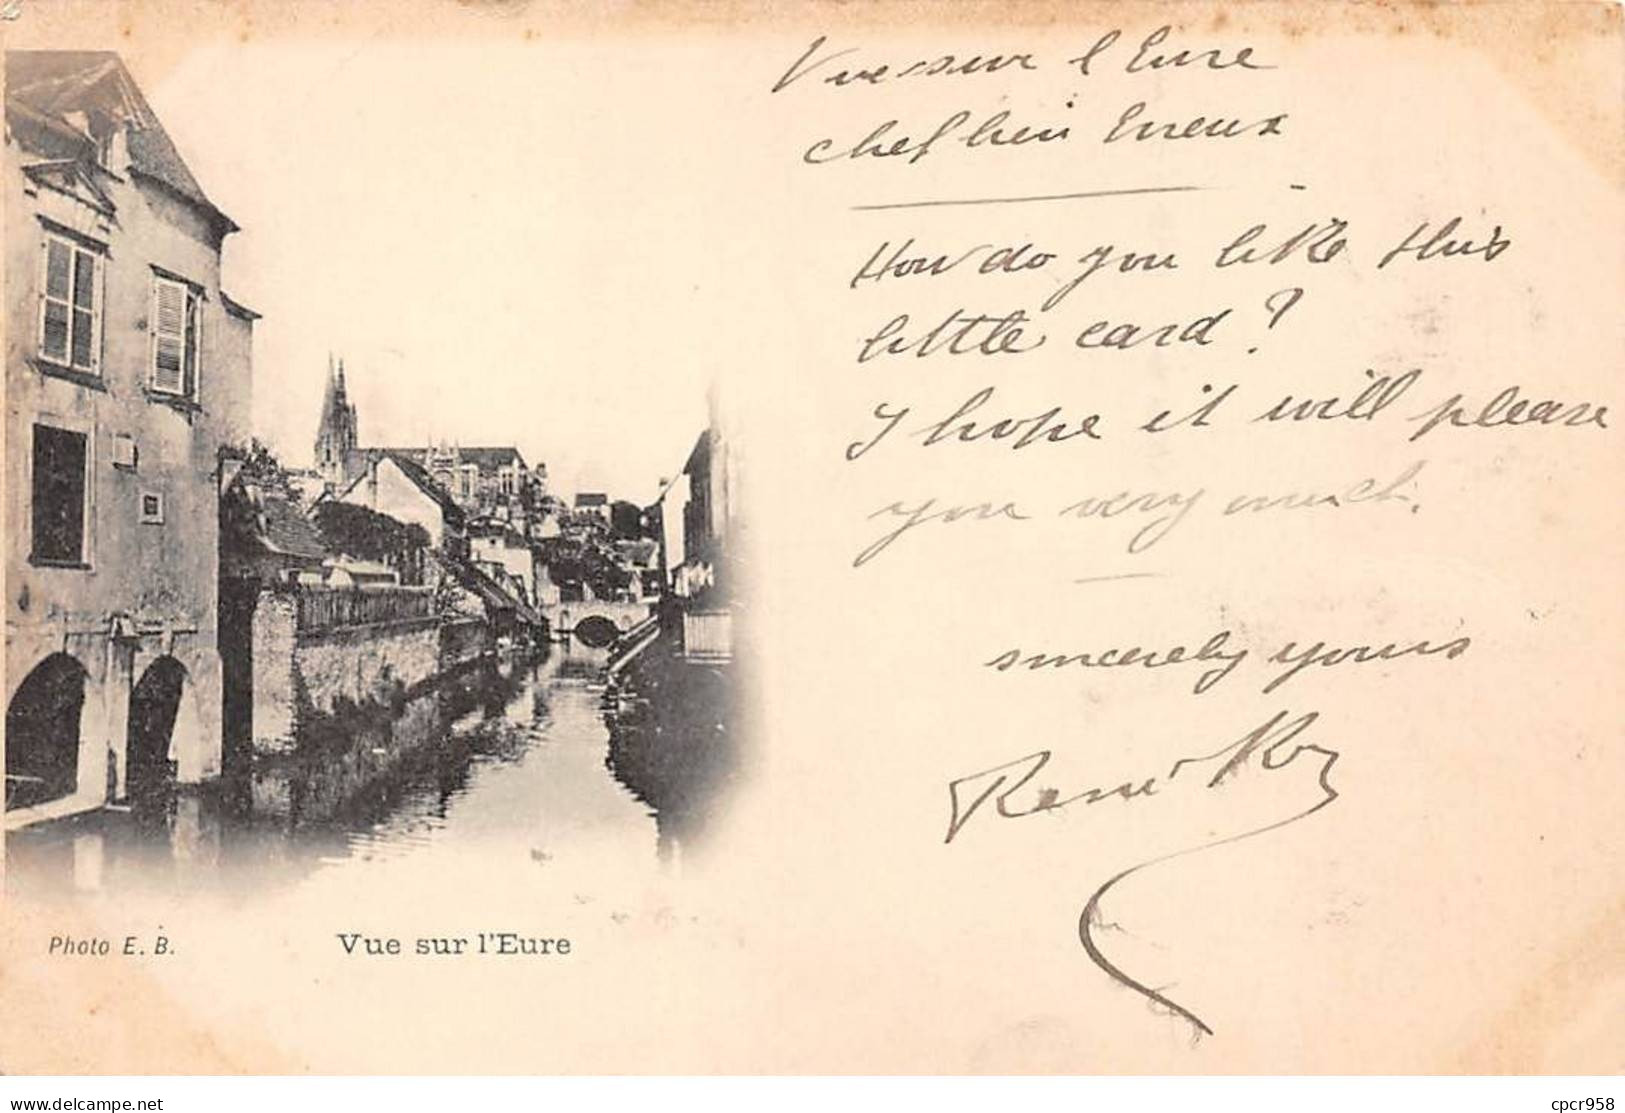 Vue sur l'Eure
chef lieu Evreux
How do you like this
little card?
I hope it will please
you very much.
sincerely yours
René Roy
Photo E. B.
Vue sur l'Eure
www.delcampe.net
cpcr958